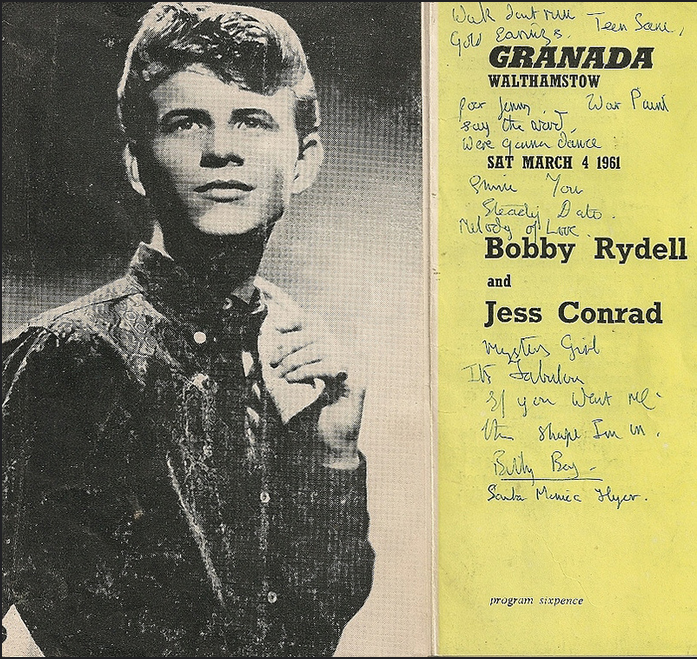 Walk dont run Teen Scene,
Gold Earrings.
GRANADA
WALTHAMSTOW
poor Jenny War Paint
say the word,
Were gonna dance
SAT MARCH 4 1961
You
Steady Date.
Melody of Love
Bobby Rydell
and
Jess Conrad
Mystery Girl
Its Fabulous
If you Want Me
the shape Im in.
Billy Boy
Santa Monica Flyer.
program sixpence